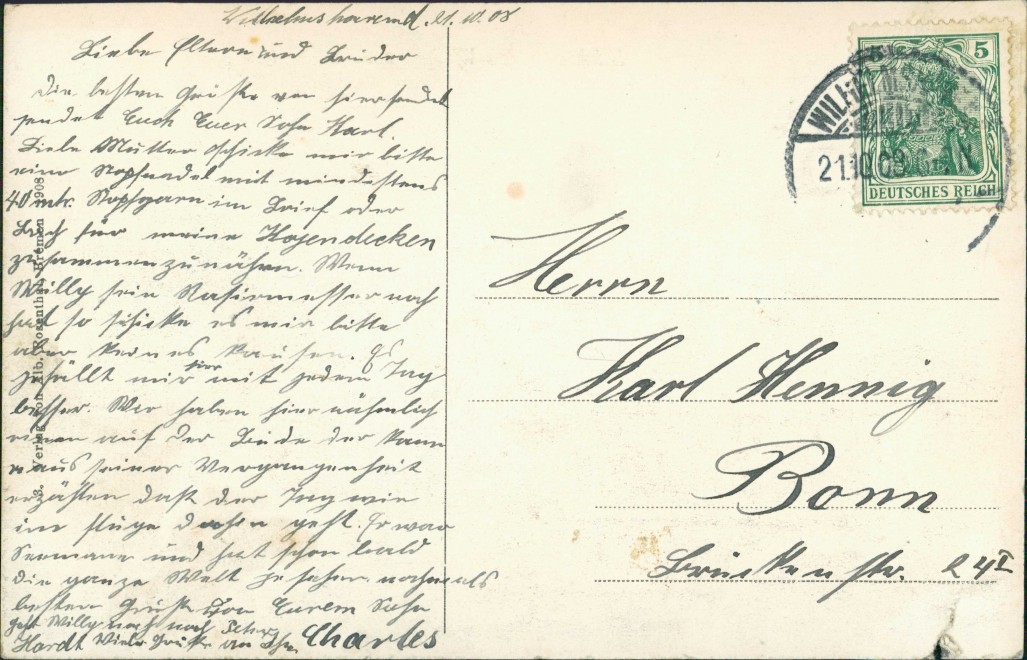 Wilhelmshaven d. 21.10.08
Liebe Eltern und Brüder
Die besten Grüße von hier sendet
sendet Euch Euer Sohn Karl.
Liebe Mutter schicke mir bitte
eine Stopfnadel mit mindestens
40 mtr. Stopfgarn im Brief oder
für meine Hosendecken
zusammenzunähen. Wenn
Willy sein Rasiermesser noch
hat so schicke es mir bitte
aber keines kaufen. Es
gefällt mir hier mit jedem Tag
besser. Wir haben hier nähmlich
einen auf der Bude der kann
aus seiner Vergangenheit
erzählen daß der Tag wie
im Fluge dahin geht. Er war
Seemann und hat schon bald
die ganze Welt gesehen. nochmals
besten Gruß von Eurem Sohn
Charles
geht Willy noch nach Peter
Hardt Viele Grüße an Ihn
Verlag von Alb. Rosenthal, Bremen 1908
DEUTSCHES REICH
5
21.10.08
Herrn
Karl Hennig
Bonn
Brückenstr. 24 I